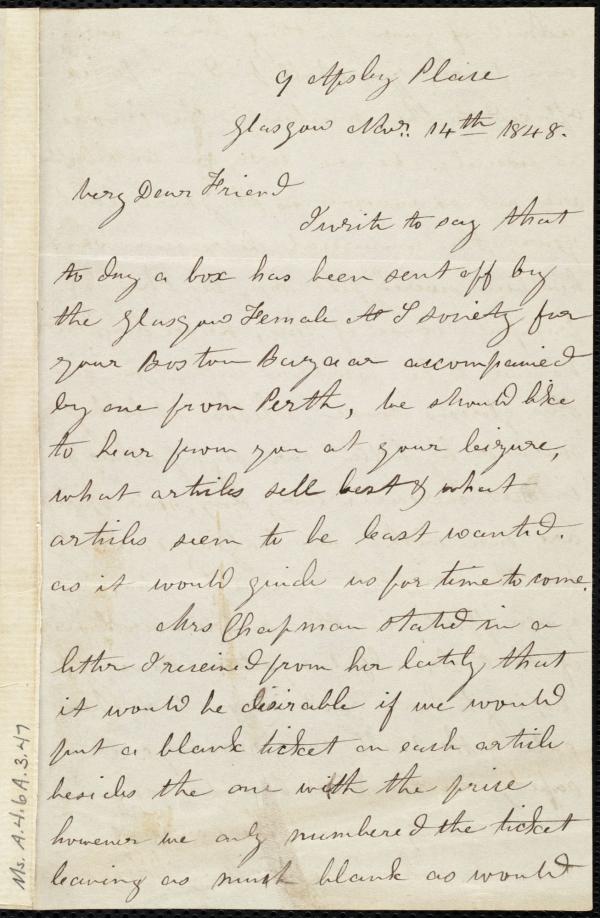 9 Apsley Place
Glasgow Novr. 14th 1848.
Very Dear Friend
I write to say that
to day a box has been sent off by
the Glasgow Female A S Society for
your Boston Bazaar accompanied
by one from Perth, we should like
to hear from you at your leizure,
what articles sell best & what
articles seem to be least wanted.
as it would guide us for time to come.
Mrs Chapman stated in a
letter I received from her lately that
it would be disirable if we would
put a blank ticket on each article
besides the one with the price
however we only numbered the ticket
leaving as much blank as would
Ms. A.4.6A.3.47